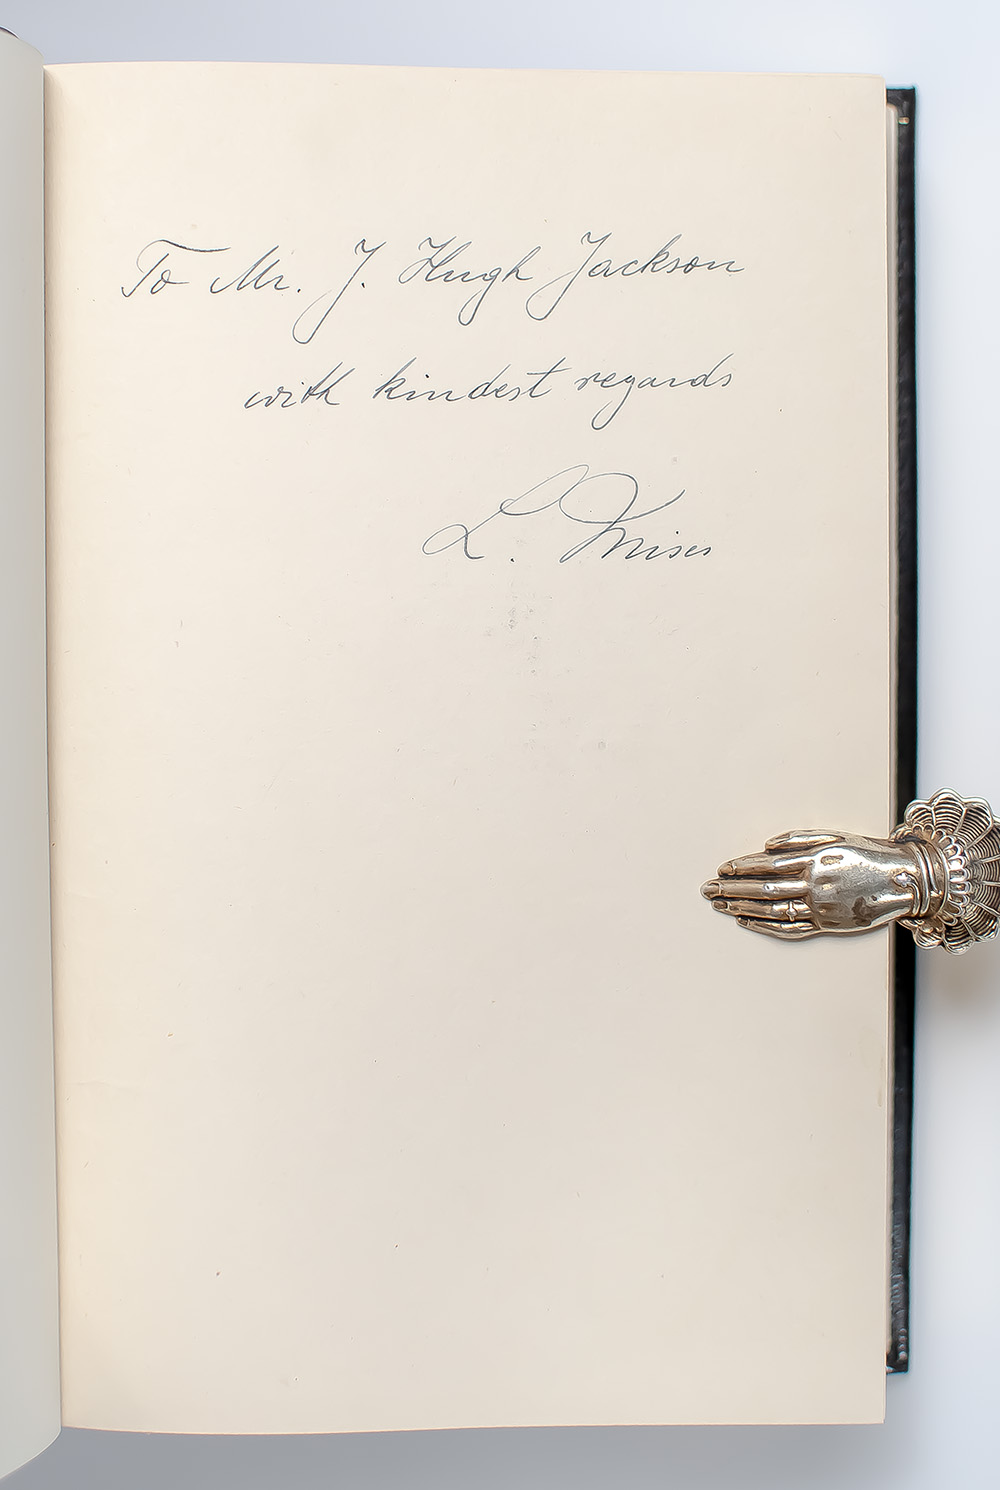 To Mr. J. Hugh Jackson
with kindest regards
L. Mises